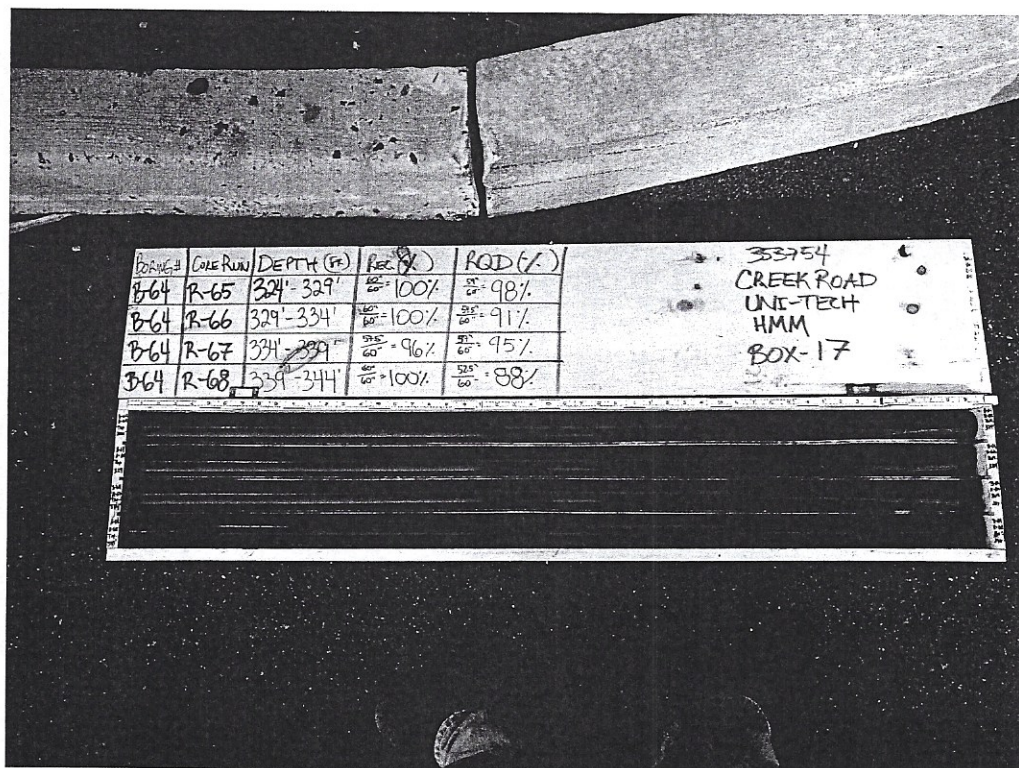 BORING# CORE RUN DEPTH (FT) REC (%) RQD (%)
B-64 R-65 324'-329' 60"/60" = 100% 59"/60" = 98%
B-64 R-66 329'-334' 60"/60" = 100% 54.5"/60" = 91%
B-64 R-67 334'-339' 57.5"/60" = 96% 57"/60" = 95%
B-64 R-68 339'-344' 60"/60" = 100% 52.5"/60" = 88%
353754
CREEK ROAD
UNI-TECH
HMM
BOX-17